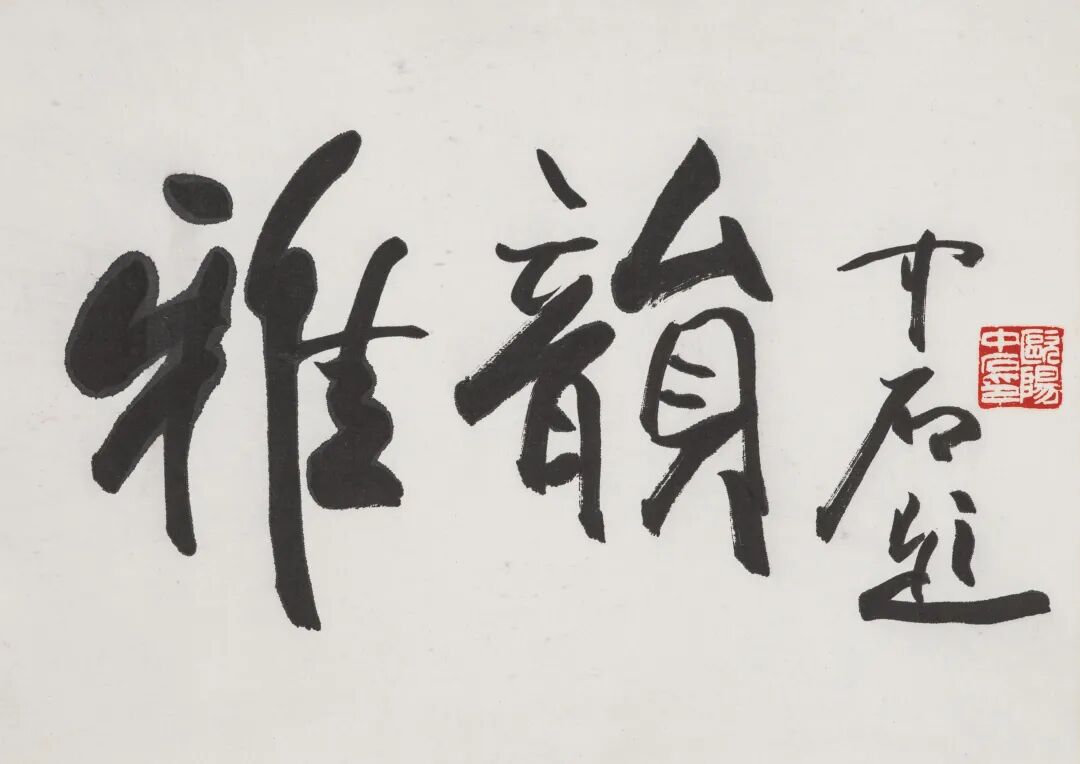 雅韻
中石題
歐陽中石璽